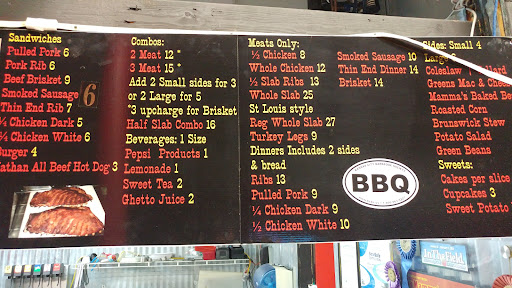 Sandwiches
Pulled Pork 6
Pork Rib 6
Beef Brisket 9
Smoked Sausage 6
Thin End Rib 7
Chicken Dark 5
Chicken White 6
Burger 4
Nathan All Beef Hot Dog 3
Combos:
2 Meat 12 *
3 Meat 15 *
Add 2 Small sides for 3
or 2 Large for 5
*3 upcharge for Brisket
Half Slab Combo 16
Beverages: 1 Size
Pepsi Products 1
Lemonade 1
Sweet Tea 2
Ghetto Juice 2
Meats Only:
½ Chicken 8
Whole Chicken 12
½ Slab Ribs 13
Whole Slab 25
St Louis style
Reg Whole Slab 27
Turkey Legs 9
Dinners Includes 2 sides
& bread
Ribs 13
Pulled Pork 9
¼ Chicken Dark 9
½ Chicken White 10
Smoked Sausage 10
Thin End Dinner 14
Brisket 14
BBQ
Sides: Small 4
Large
Coleslaw
Greens Mac & Chee
Mamma's Baked Be
Roasted Corn
Brunswick Stew
Potato Salad
Green Beans
Sweets:
Cakes per slice
Cupcakes 3
Sweet Potato
InTheField